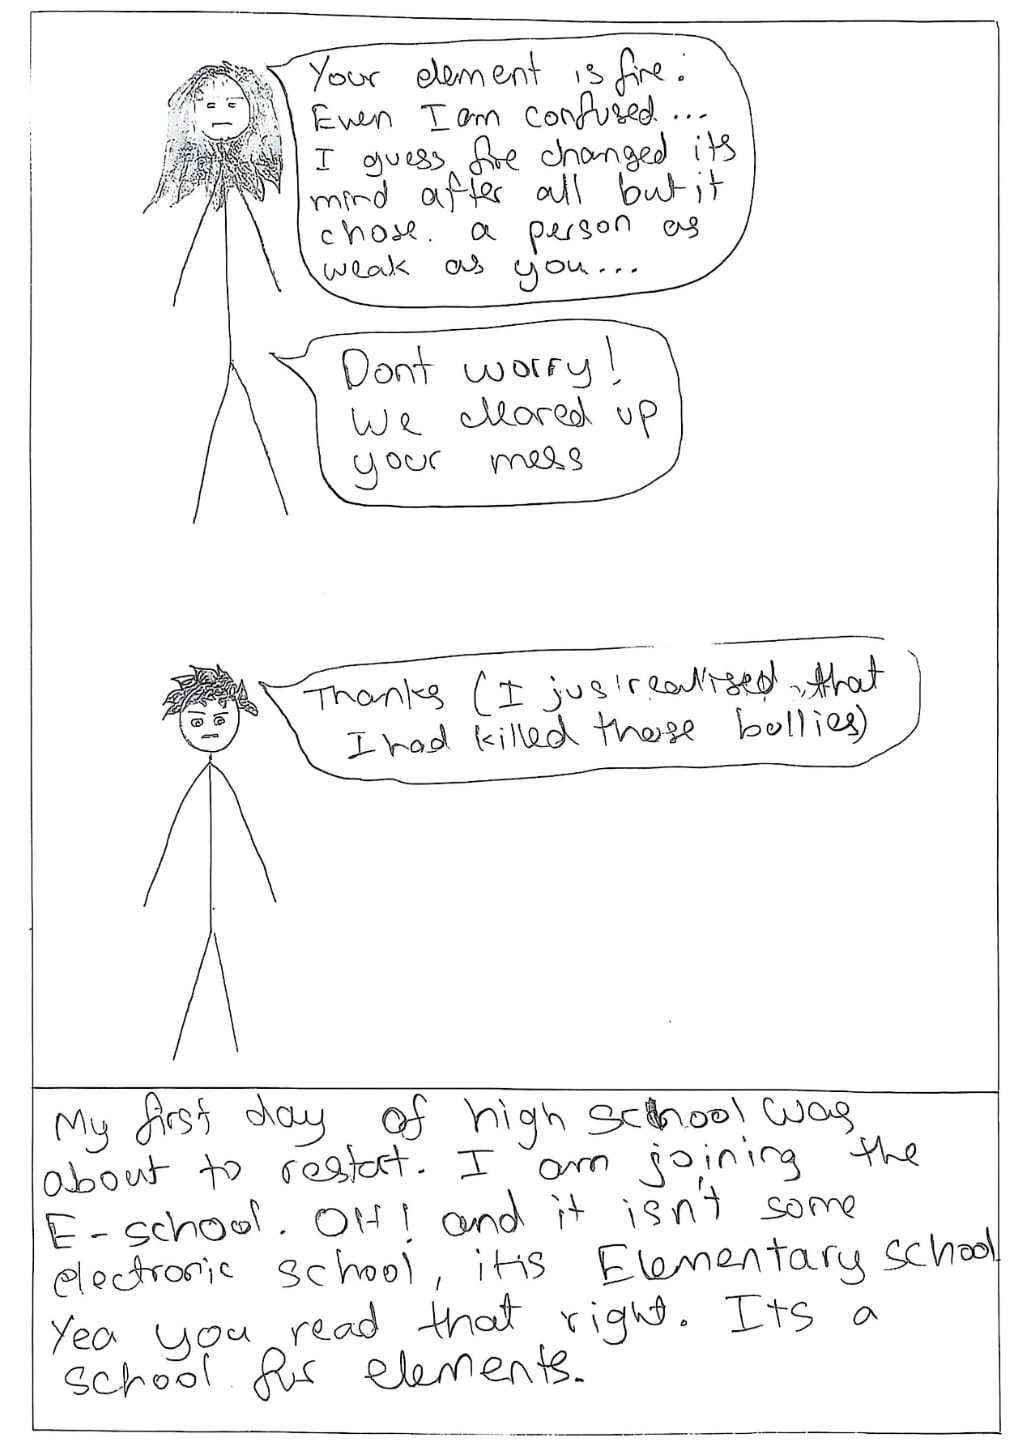 Your element is fire.
Even I am confused...
I guess fire changed its
mind after all but it
chose. a person as
weak as you...
Dont worry!
We cleared up
your mess
Thanks (I just realised that
I had killed those bullies)
My first day of high school was
about to restart. I am joining the
E-school. OH! and it isn't some
electronic school, itis Elementary school
Yea you read that right. Its a
school for elements.